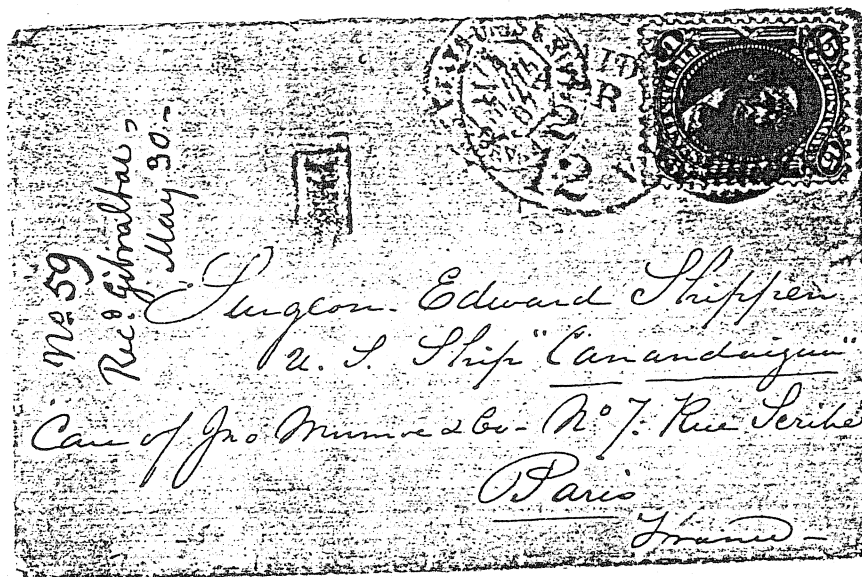 No 59
Recd. Gibraltar -
May 30. -
PAID
APR
12
15
15
Surgeon. Edward Shippen
U. S. Ship "Canandaigua"
Care of Jno Munroe & Co - No 7. Rue Scribe
Paris
France -